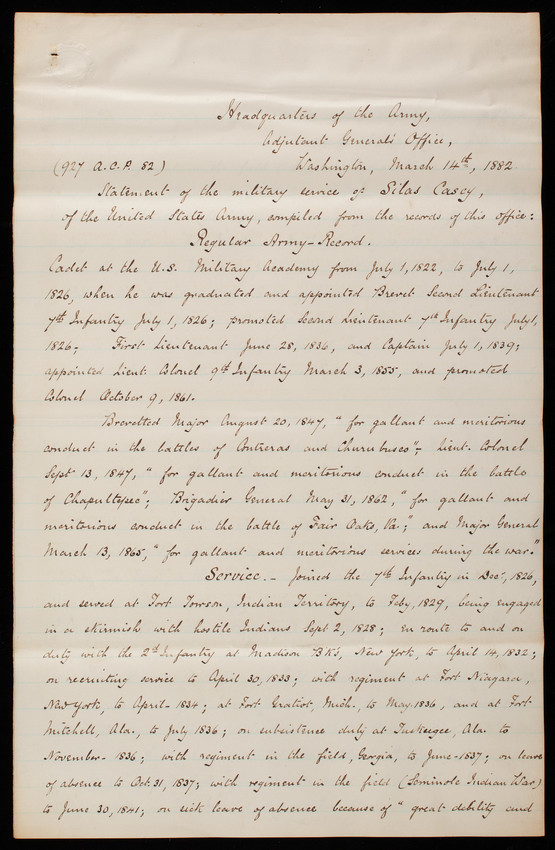 Headquarters of the Army,
Adjutant General's Office,
(927 A.C.P. 82) Washington, March 14th, 1882
Statement of the military service of Silas Casey,
of the United States Army, compiled from the records of this office:
Regular Army-Record.
Cadet at the U.S. Military Academy from July 1, 1822, to July 1,
1826, when he was graduated and appointed Brevet Second Lieutenant
7th Infantry July 1, 1826; promoted Second Lieutenant 7th Infantry July 1,
1826; First Lieutenant June 28, 1836, and Captain July 1, 1839;
appointed Lieut. Colonel 9th Infantry March 3, 1855, and promoted
Colonel October 9, 1861.
Brevetted Major August 20, 1847, "for gallant and meritorious
conduct in the battles of Contreras and Churubusco"; Lieut. Colonel
Sept 13, 1847, "for gallant and meritorious conduct in the battle
of Chapultepec"; Brigadier General May 31, 1862, "for gallant and
meritorious conduct in the battle of Fair Oaks, Va.;" and Major General
March 13, 1865, "for gallant and meritorious services during the war."
Service.- Joined the 7th Infantry in Decr, 1826,
and served at Fort Towson, Indian Territory, to Feby, 1829, being engaged
in a skirmish with hostile Indians Sept 2, 1828; en route to and on
duty with the 2d Infantry at Madison Bks, New York, to April 14, 1832;
on recruiting service to April 30, 1833; with regiment at Fort Niagara,
New York, to April-1834; at Fort Gratiot, Mich., to May-1836, and at Fort
Mitchell, Ala., to July 1836; on subsistence duty at Tuskeegee, Ala. to
November-1836; with regiment in the field, Georgia, to June-1837; on leave
of absence to Oct. 31, 1837; with regiment in the field (Seminole Indian War)
to June 30, 1841; on sick leave of absence because of "great debility and